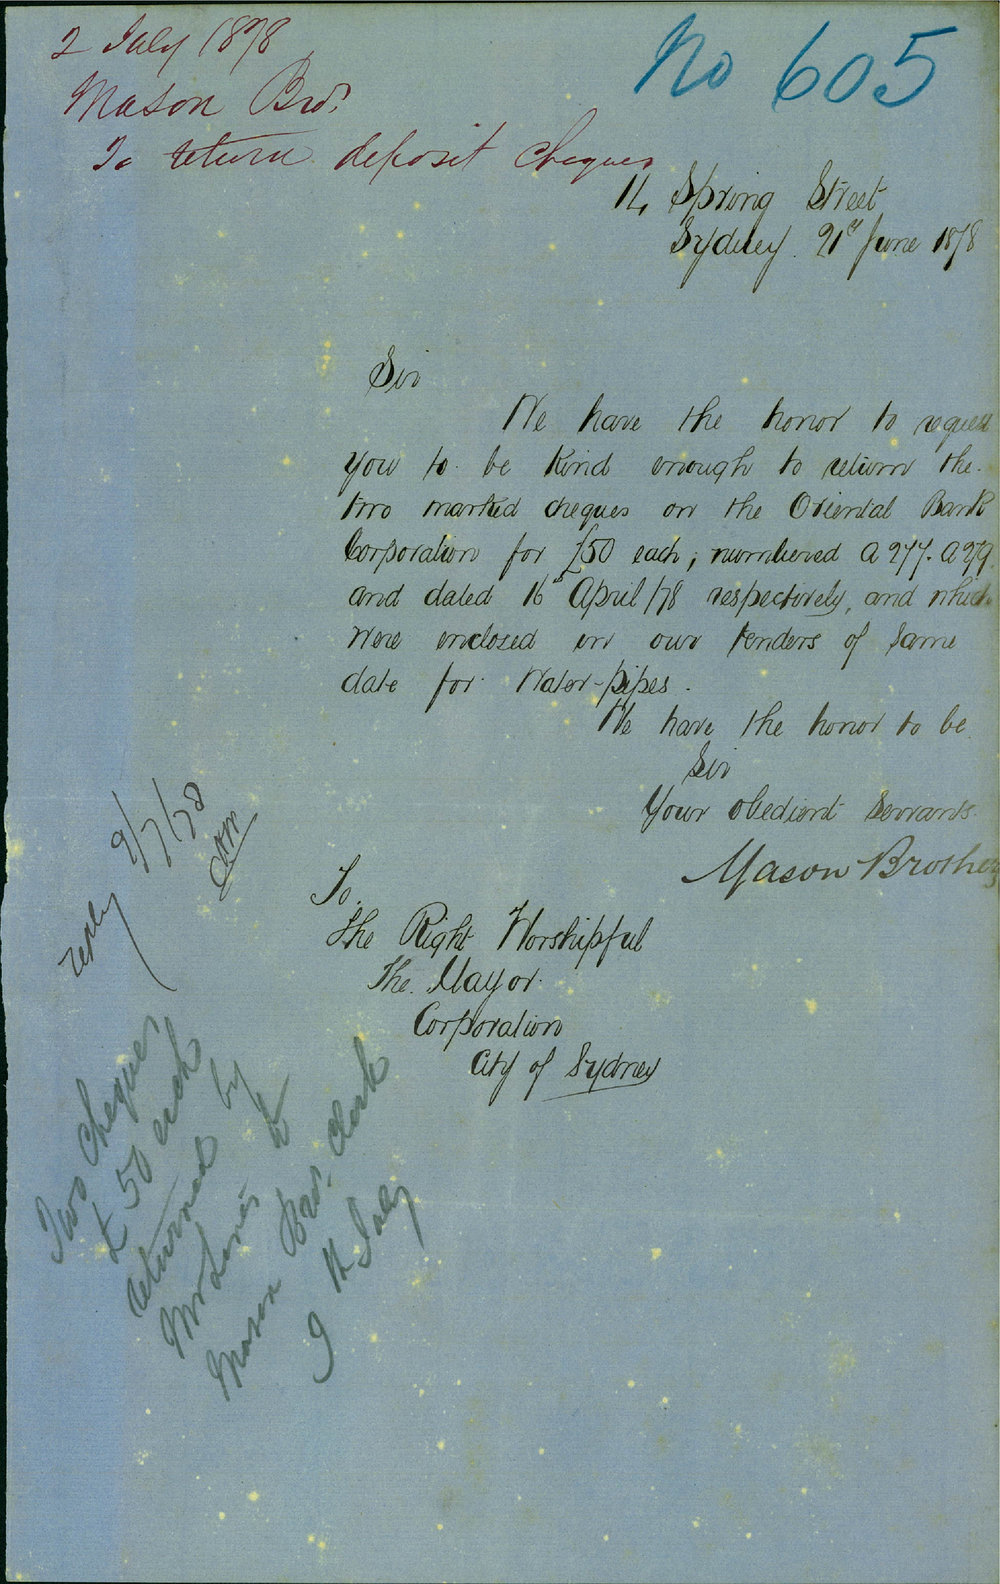 2 July 1878
Mason Bros.
To return deposit cheques
No 605
14, Spring Street
Sydney. 21st June 1878
Sir
We have the honor to request
you to be kind enough to return the
two marked cheques on the Oriental Bank
Corporation for £50 each, numbered A 277. A 279.
and dated 16th April/78 respectively, and which
were enclosed in our tenders of same
date for Water-pipes.
We have the honor to be
Sir
Your obedient servants.
Mason Brothers
To.
The Right Worshipful
The Mayor.
Corporation
City of Sydney
reply 9/7/78
Two cheques
£50 each
returned by
Mr to
Mason Bros. Clerk
9th July